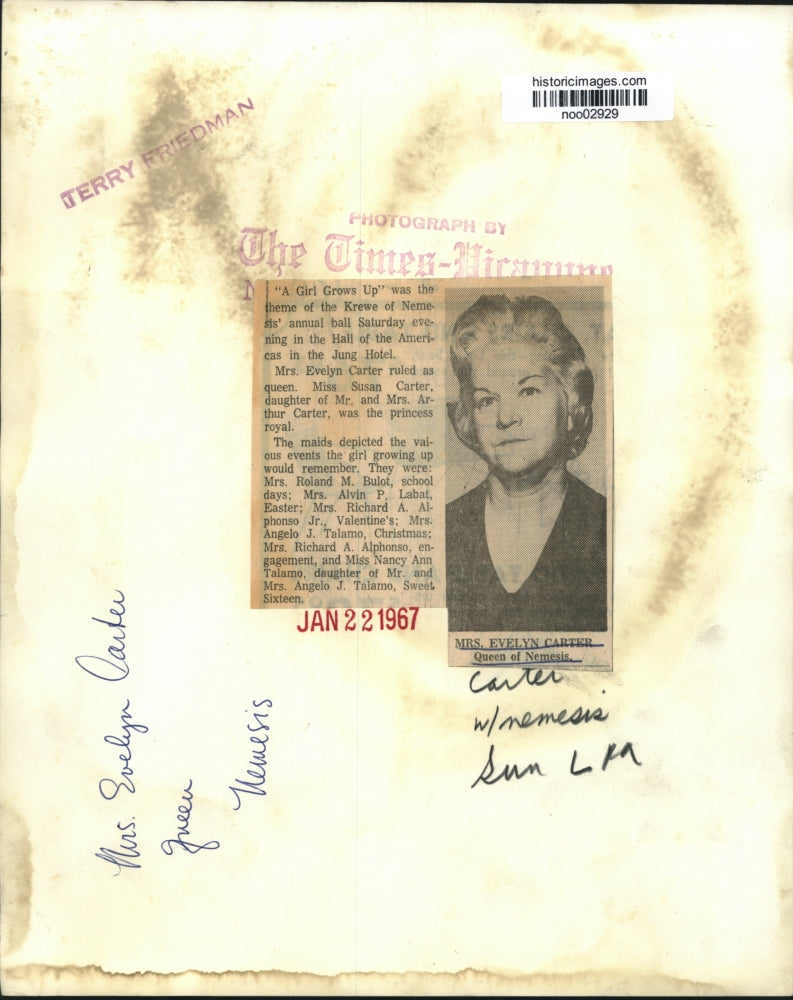 historicimages.com
noo02929
TERRY FRIEDMAN
PHOTOGRAPH BY
The Times-Picayune
N
"A Girl Grows Up" was the
theme of the Krewe of Neme-
sis' annual ball Saturday eve-
ning in the Hall of the Ameri-
cas in the Jung Hotel.
Mrs. Evelyn Carter ruled as
queen. Miss Susan Carter,
daughter of Mr. and Mrs. Ar-
thur Carter, was the princess
royal.
The maids depicted the vai-
ous events the girl growing up
would remember. They were:
Mrs. Roland M. Bulot, school
days; Mrs. Alvin P. Labat,
Easter; Mrs. Richard A. Al-
phonso Jr., Valentine's; Mrs.
Angelo J. Talamo, Christmas;
Mrs. Richard A. Alphonso, en-
gagement, and Miss Nancy Ann
Talamo, daughter of Mr. and
Mrs. Angelo J. Talamo, Sweet
Sixteen.
JAN 22 1967
MRS. EVELYN CARTER
Queen of Nemesis.
Carter
w/nemesis
Sun L
Mrs. Evelyn Carter
queen
Nemesis